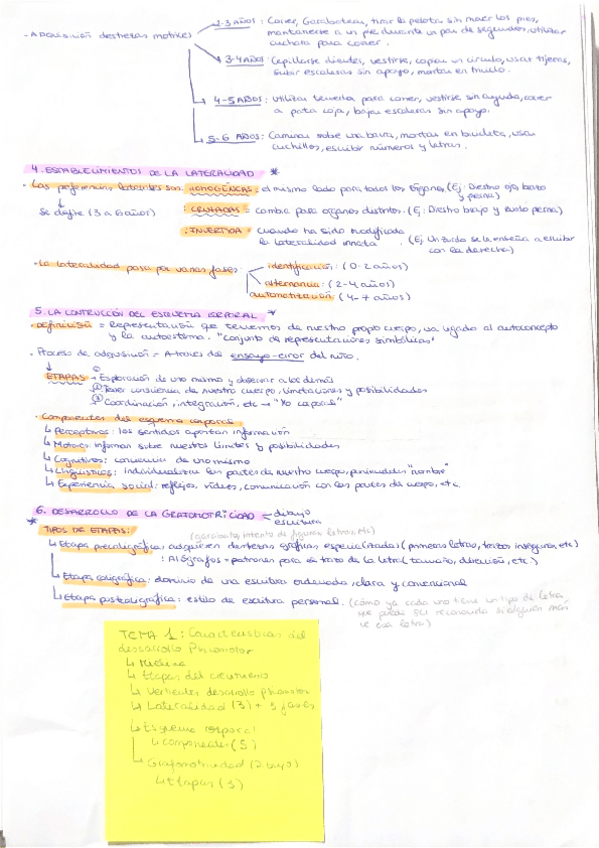 - Adquisición destrezas motrices
2-3 AÑOS: Correr, Garabatear, tirar la pelota sin mover los pies,
mantenerse a un pie durante un par de segundos, utilizar
cuchara para comer.
3-4 AÑOS: Cepillarse dientes, vestirse, copiar un círculo, usar tijeras,
subir escaleras sin apoyo, montar en triciclo.
4-5 AÑOS: Utilizar tenedor para comer, vestirse sin ayuda, correr
a pata coja, bajar escaleras sin apoyo.
5-6 AÑOS: Caminar sobre una barra, montar en bicicleta, usar
cuchillos, escribir números y letras.
4. ESTABLECIMIENTOS DE LA LATERALIDAD *
· Las preferencias laterales son: HOMOGÉNEAS: el mismo lado para todos los órganos. (Ej: Diestro ojo, brazo
y pierna)
Se define (3 a 6 años)
: CRUZADAS = cambia para órganos distintos. (Ej: Diestro brazo y zurdo pierna)
: INVERTIDA = Cuando ha sido modificada
la lateralidad innata. (Ej: Un zurdo se le enseña a escribir
con la derecha)
· La lateralidad pasa por varias fases:
identificación: (0-2 años)
alternancia: (2-4 años)
automatización: (4-7 años)
5. LA CONTRUCCIÓN DEL ESQUEMA CORPORAL *
· Definición = Representación que tenemos de nuestro propio cuerpo, va ligado al autoconcepto
y la autoestima. "conjunto de representaciones simbólicas"
· Proceso de adquisición = A través del ensayo-error del niño.
ETAPAS
① Exploración de uno mismo y observar a los demás
② Tener consciencia de nuestro cuerpo, limitaciones y posibilidades
③ Coordinación, integración, etc → "Yo corporal"
· Componentes del esquema corporal
↳ Perceptivos: los sentidos aportan información
↳ Motores: informan sobre nuestros límites y posibilidades
↳ Cognitivos: conciencia de uno mismo
↳ Lingüísticos: Individualizar las partes de nuestro cuerpo, poniendoles "nombre"
↳ Experiencia social: reflejos, vídeos, comunicación con las partes del cuerpo, etc.
6. DESARROLLO DE LA GRAFOMOTRICIDAD
dibujo
escritura
* TIPOS DE ETAPAS:
(garabatos, intento de figuras, letras etc)
↳ Etapa precaligráfica: adquieren destrezas gráficas especializadas (primeras letras, trazos inseguros, etc)
: Alógrafos = patrones para el trazo de la letra (tamaño, dirección, etc.)
↳ Etapa caligráfica: dominio de una escritura ordenada, clara y convencional
↳ Etapa postcaligráfica: estilo de escritura personal. (cómo ya cada uno tiene un tipo de letra,
que puede ser reconocida si alguien más
ve esa letra)
TEMA 1: Características del
desarrollo Psicomotor
↳ Mielina
↳ Etapas del crecimiento
↳ Vertientes desarrollo psicomotor
↳ Lateralidad (3) + 3 fases
↳ Esquema corporal
↳ Componentes (5)
↳ Grafomotricidad
↳ Etapas (3)